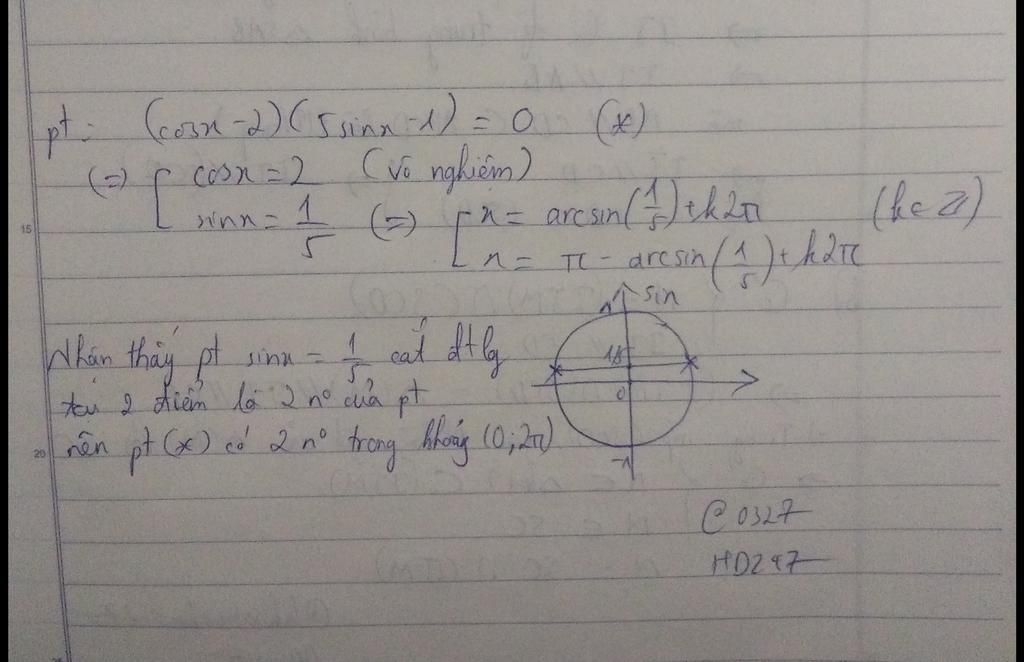 pt: (cosx-2)(5sinx-1) = 0 (*)
(=) [ cosx = 2 (vô nghiệm)
sinx = 1/5 (=) [ x = arcsin(1/5)+k2π (k∈Z)
x = π - arcsin(1/5)+k2π
1 sin
Nhận thấy pt sinx = 1/5 cắt đtlg
tại 2 điểm là 2 n° của pt
nên pt (*) có 2 n° trong khoảng (0;2π)
1/5
0
-1
@ 0327
HD247
15
20